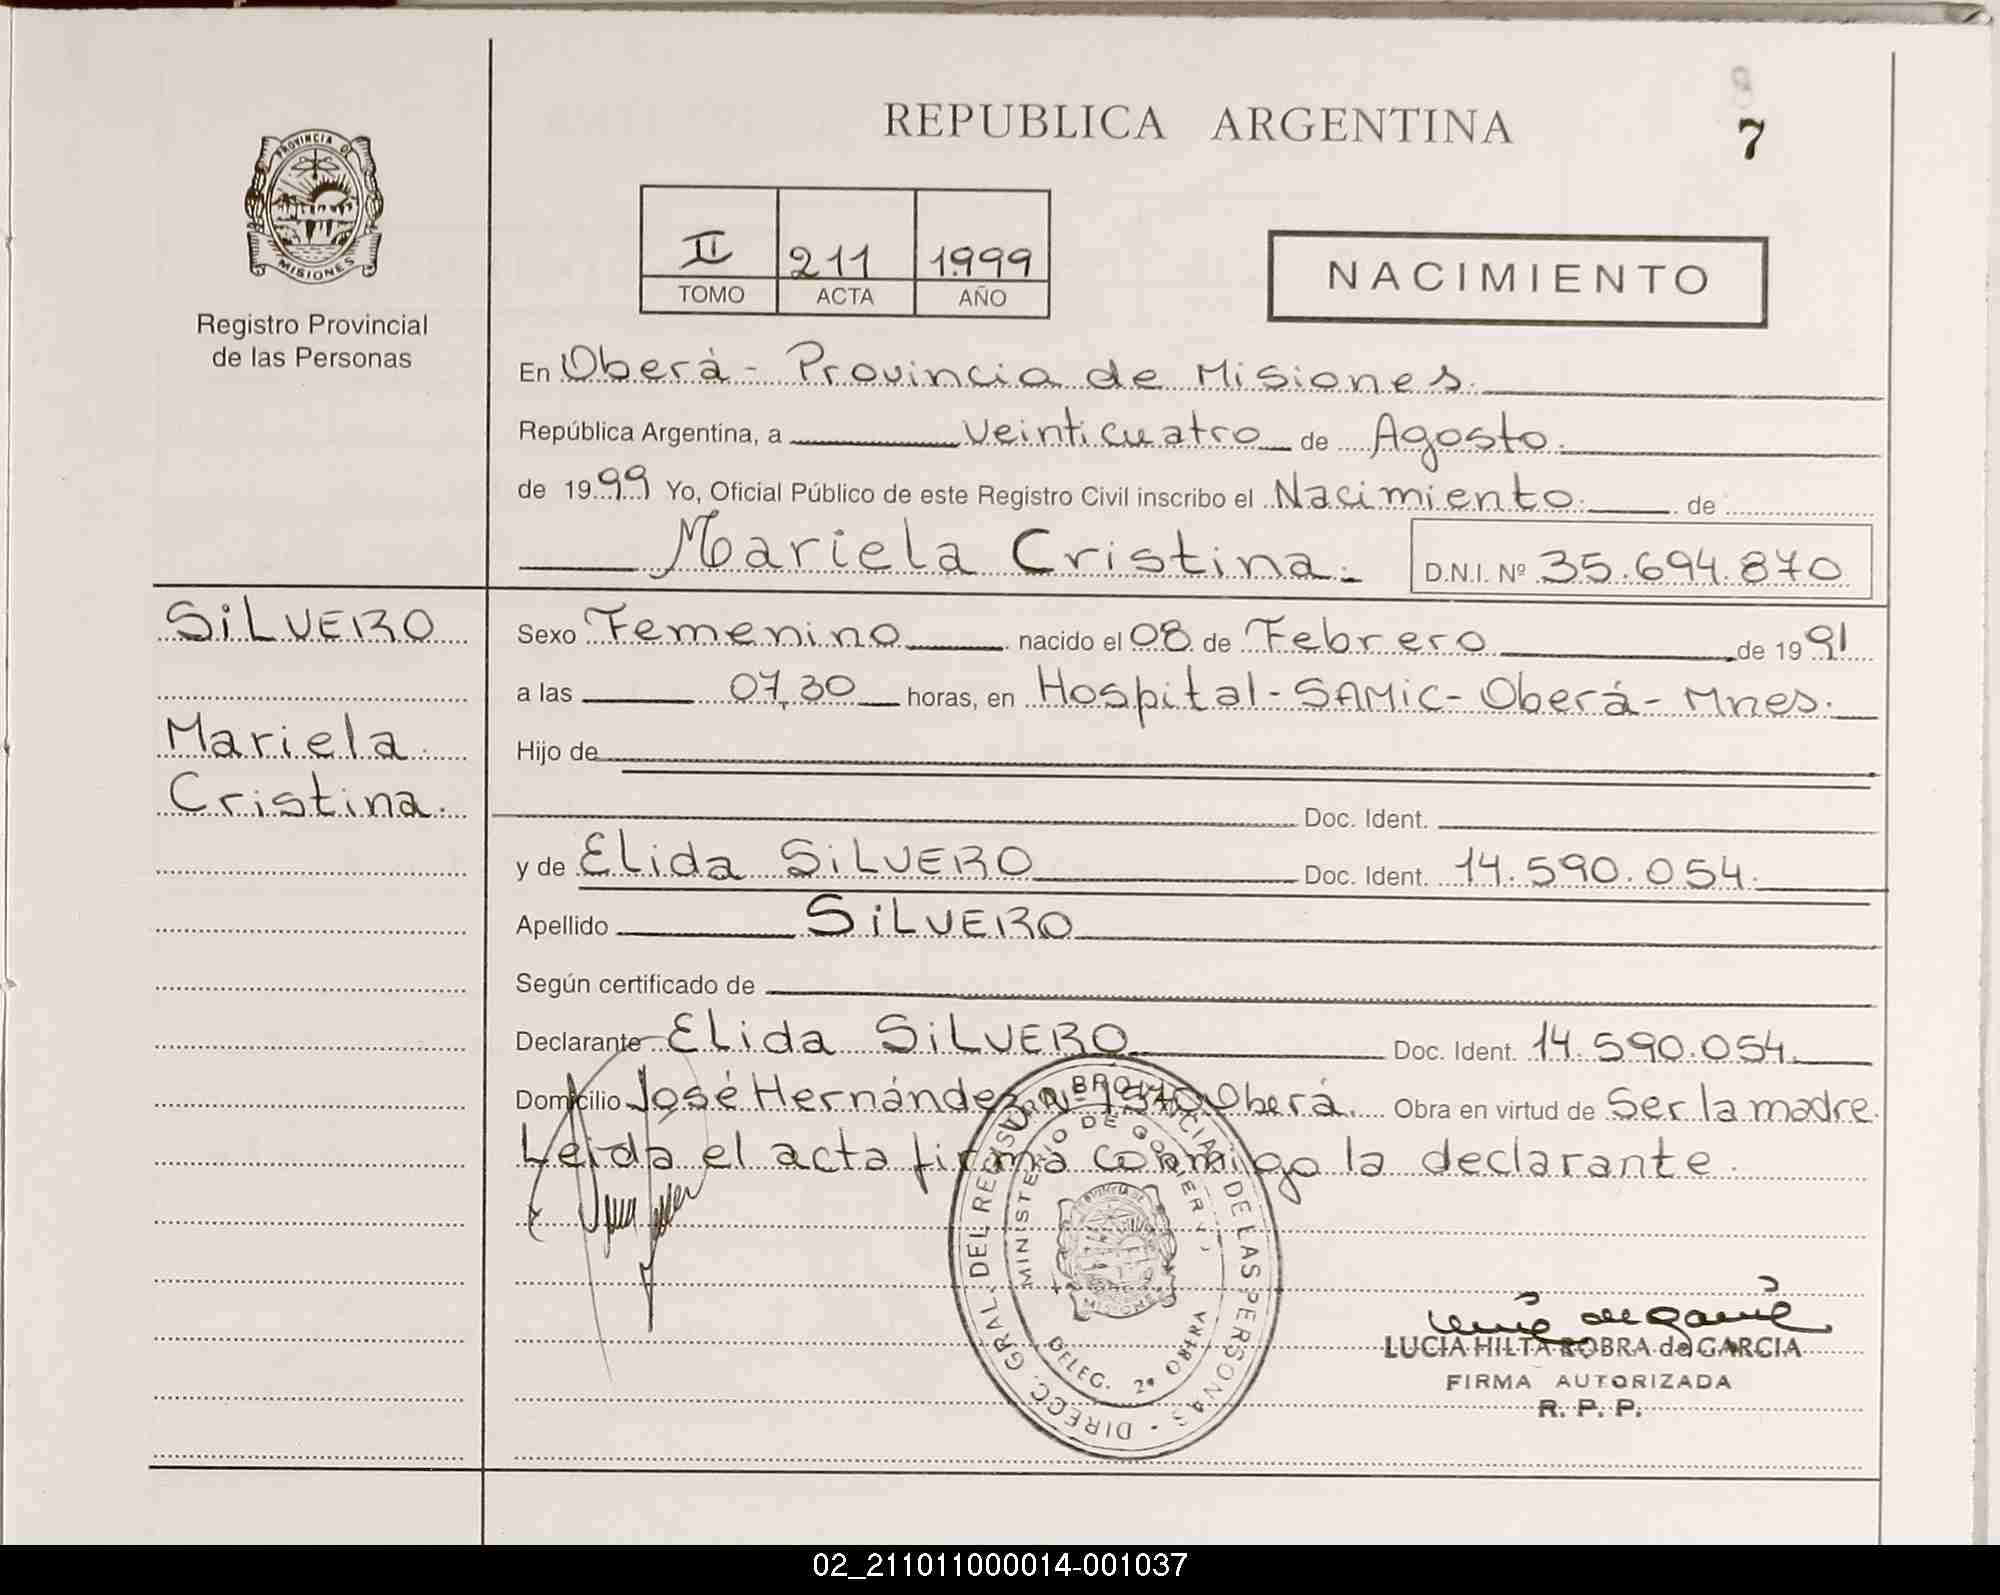 8
7
REPUBLICA ARGENTINA
PROVINCIA DE
MISIONES
Registro Provincial
de las Personas
II 211 1999
TOMO ACTA AÑO
NACIMIENTO
En Oberá - Provincia de Misiones.
República Argentina, a veinticuatro de Agosto.
de 1999 Yo, Oficial Público de este Registro Civil inscribo el Nacimiento. de
Mariela Cristina. D.N.I. Nº 35.694.870
SILVERO
Mariela
Cristina.
Sexo Femenino nacido el 08 de Febrero de 1991
a las 07,30 horas, en Hospital - SAMIC - Oberá - Mnes.
Hijo de
Doc. Ident.
y de Elida SILVERO Doc. Ident. 14.590.054.
Apellido SILVERO
Según certificado de
Declarante Elida SILVERO Doc. Ident. 14.590.054.
Domicilio José Hernández Nº 1570 Oberá. Obra en virtud de Ser la madre.
Leida el acta firma conmigo la declarante.
DIRECC. GRAL. DEL REGISTRO PROVINCIAL DE LAS PERSONAS
MINISTERIO DE GOBIERNO
MISIONES
DELEG. 2ª OBERA
LUCIA HILTA ROBRA de GARCIA
FIRMA AUTORIZADA
R. P. P.
02_211011000014-001037